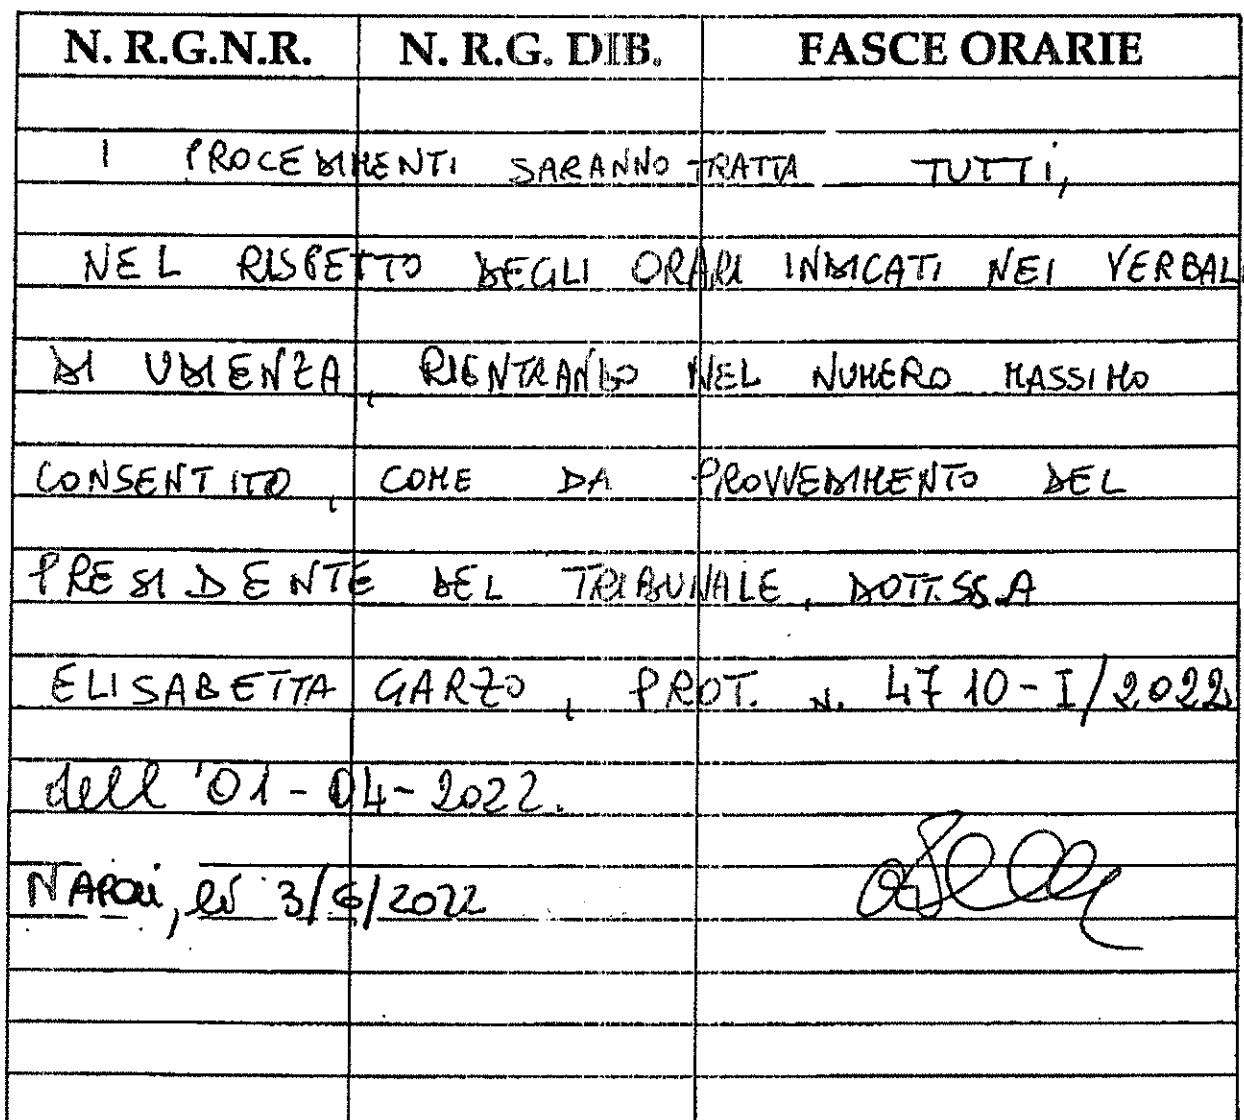 N. R.G.N.R. N. R.G. DIB. FASCE ORARIE
I PROCEDIMENTI SARANNO TRATTA TUTTI,
NEL RISPETTO DEGLI ORARI INDICATI NEI VERBALI
DI UDIENZA, RIENTRANDO NEL NUMERO MASSIMO
CONSENTITO, COME DA PROVVEDIMENTO DEL
PRESIDENTE DEL TRIBUNALE, DOTT.SS.A
ELISABETTA GARZO, PROT. N. 4710-I/2022
dell'01-04-2022.
NAPOLI, lì 3/6/2022